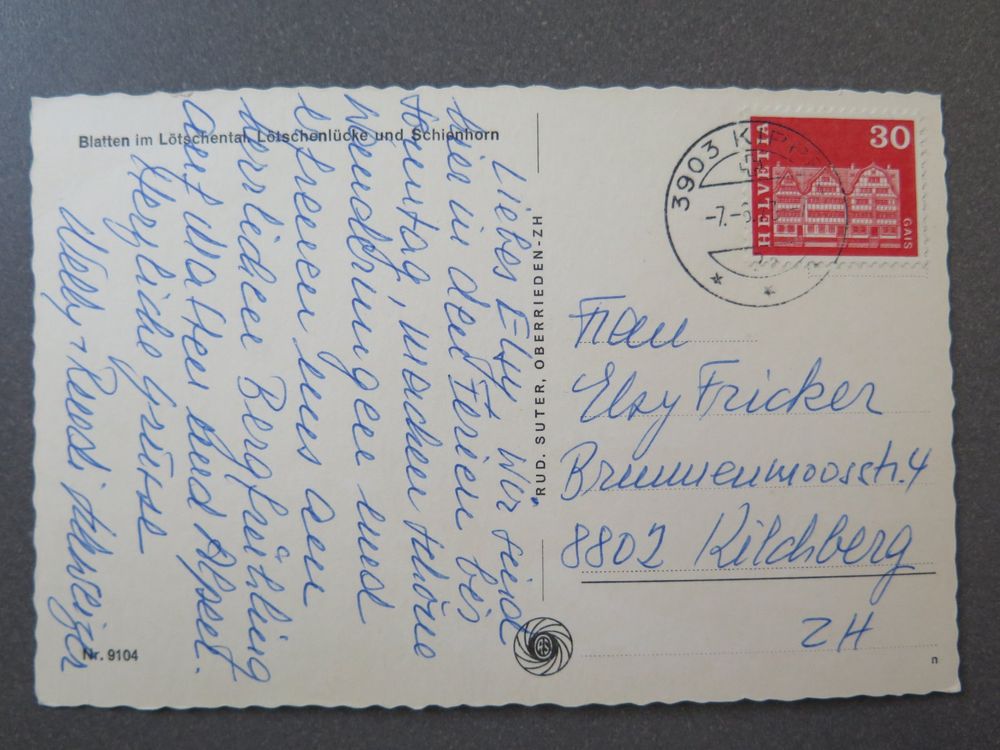 Blatten im Lötschental, Lötschenlücke und Schienhorn
Liebes Elsy Wir sind
hier in den Ferien bis
Sonntag, machen schöne
Wanderungen und
erfreuen uns am
herrlichen Bergfrühling
auf Matten und Alpen.
Herzliche Grüsse
Willy + Roesli Schweizer
Nr. 9104
RUD. SUTER, OBERRIEDEN-ZH
RS
3903 KIPPEL
-7.-6
HELVETIA
30
GAIS
Frau
Elsy Fricker
Brunnenmoosstr. 4
8802 Kilchberg
ZH
n